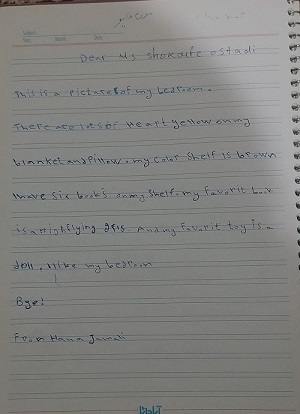 Dear Ms shokoufe ostadi
This is a picture of my bedroom.
There are lots of Heart yellow on my
blanket and Pillow. my color shelf is brown
I have six book's on my shelf. my favorit
is a High flying. And my favorit toy is a
doll. I like my bedroom
Bye!
From Hana Jamali